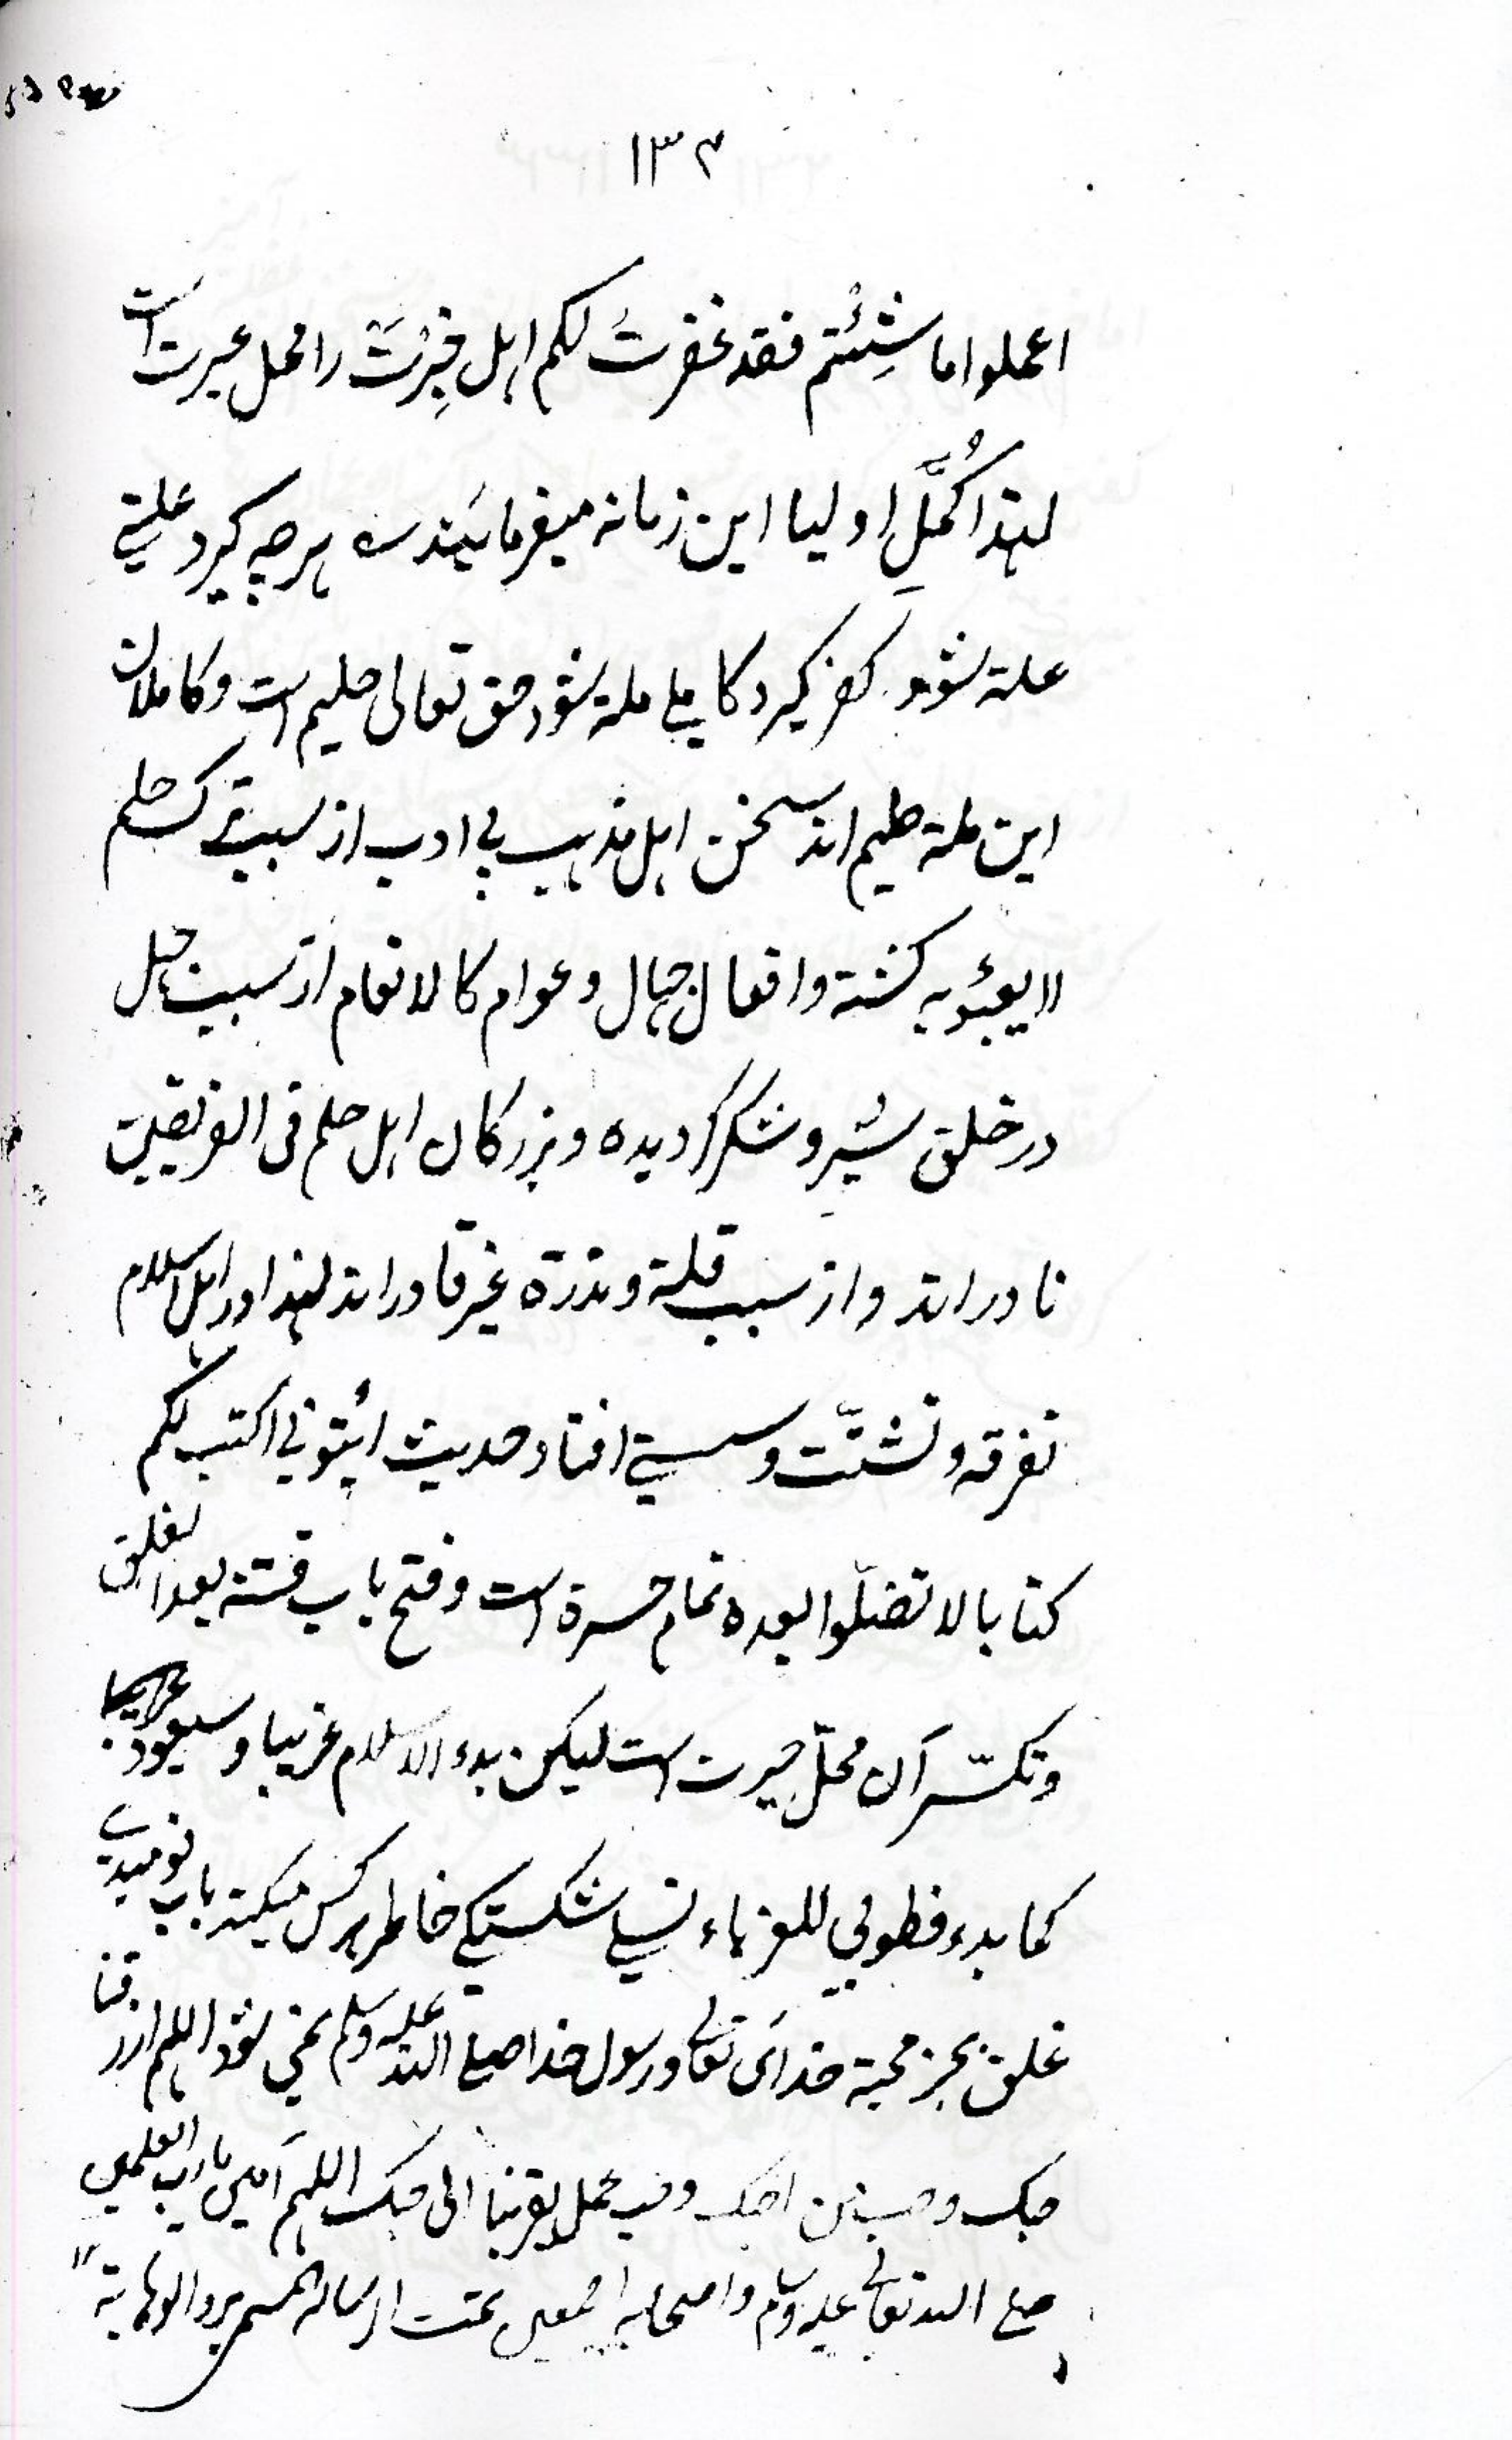 ۱۳۴
اعملوا ما شِئتُم فقد غفرتُ لکم اہل خِبْرَتْ را محل عبرت است
لہٰذا کُمَّلِ اولیا این زمانہ میفرمایَند ؎ ہرچہ گیرد علتی
علت شود کفر گیرد کاملے ملت شود حق تعالی حلیم است و کاملان
این ملت حلیم اند سخن اہل مذہب بی ادب از سبب ترک حلم
لا یعبؤبہ کشتہ و افعال جہال و عوام کالانعام از سبب جہل
در خلق شیر و شکر گردیدہ و بزرگان اہل حلم فی الفریقین
نادر اند و از سبب قلة و ندرة غیر قادر اند لہٰذا در اہل اسلام
تفرقہ و تشتّت و سستی افتاد حدیث ائتونی اکتب لکم
کتابا لا تضلّوا بعدہ تمام حسرة است و فتح باب فتنہ بعد الغلق
و تکسّر آن محلّ حیرت است لیکن بدء الاسلام غریبا و سیعود غریبا
کما بدء فطوبی للغرباء تسلی شکستگی خاطر ہر کس میکند باب نومیدی
غلق بجز محبة خدائ تعالی و رسول خدا صلے اللہ علیہ وسلم نمی شود اللہم ارزقنا
حبک و حب من احبک و حب عمل یقربنا الی حبک اللہم آمین یا رب العلمین
صلے اللہ تعالی علیہ وسلم و اصحابہ اجمعین تمت الرسالہ المسمی برد الوہابیة ۱۲